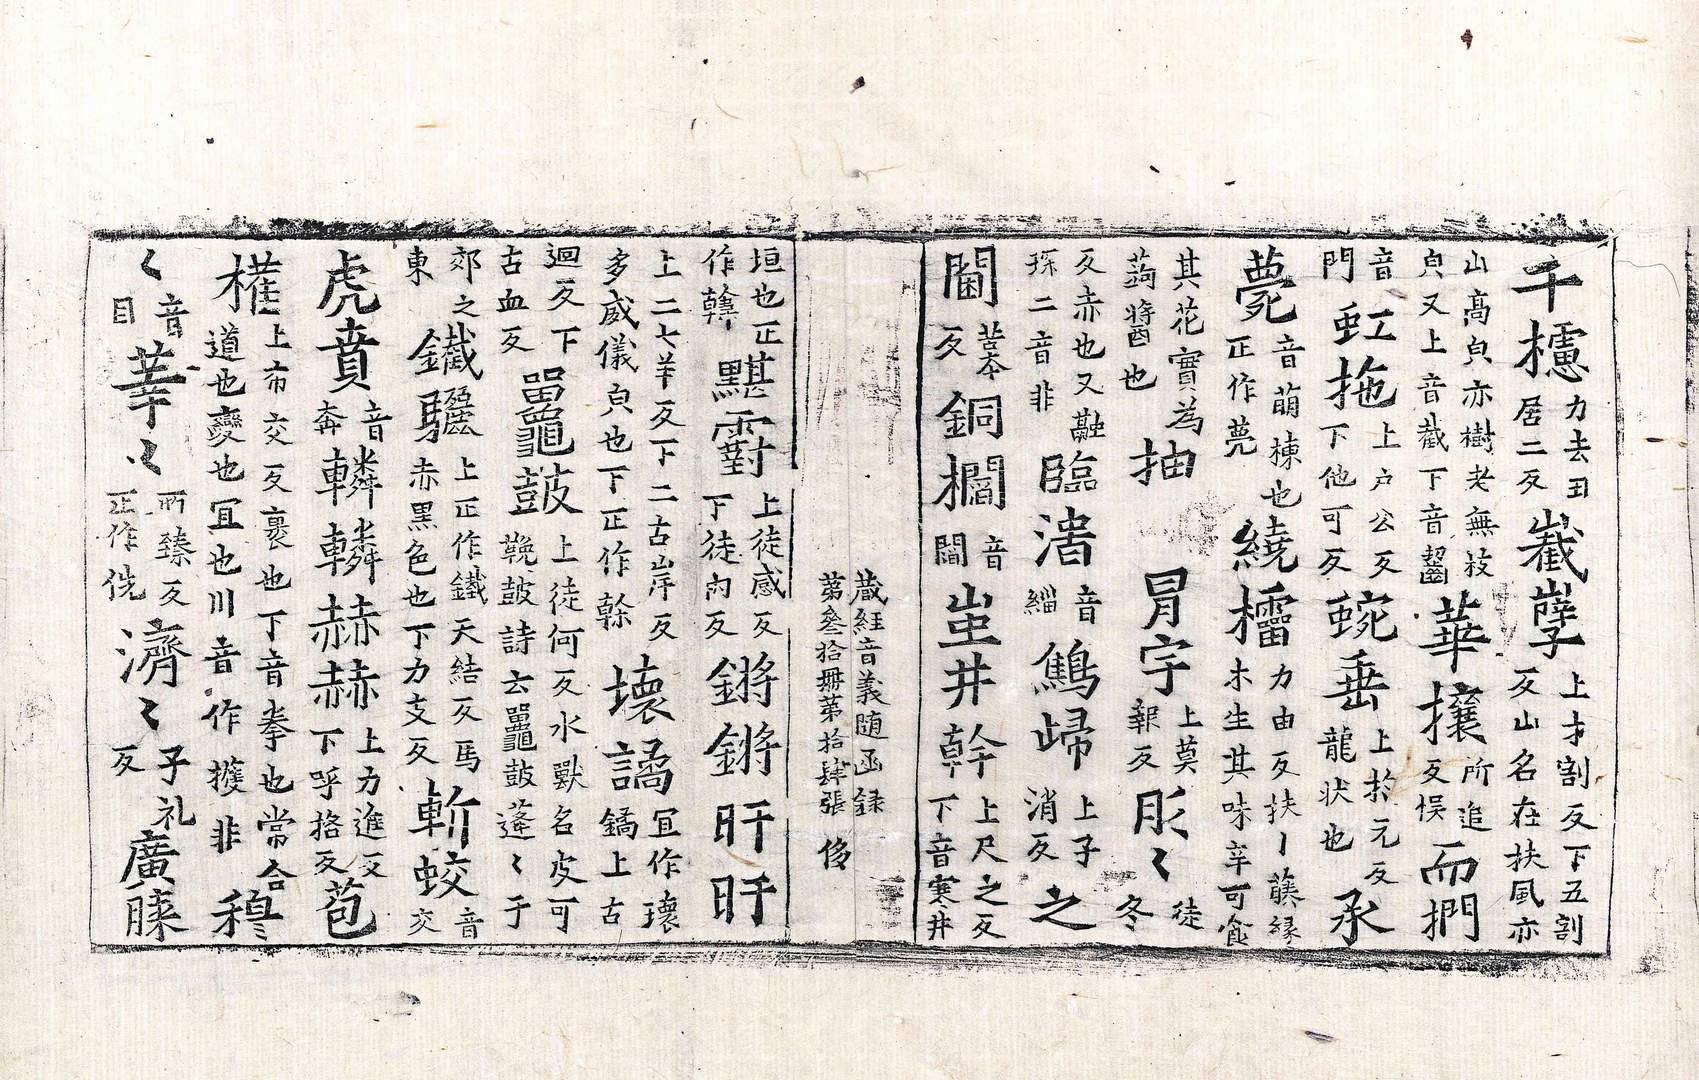 千櫖力去丑居二反嶻㠋上才割反下五割反山名在扶風亦
山髙皃亦樹老無枝皃又上音截下音齧華攘所追反悮而捫
音門虹拖上戸公反下他可反蜿垂上於元反龍狀也承
甍音萌棟也正作甍繞櫑力由反扶丨藤縁木生其味辛可食
其花實為蒟醬也抽冐宇上莫報反肜〻徒冬
反赤也又融琛二音非臨濇音緇鷦㱕上子消反之
閫苦本反銅櫩音閻蚩井幹上尺之反下音寒井
藏経音義随函録第叄拾冊第拾肆張侈
垣也正作韓黮䨴上徒感反下徒內反鏘鏘旰旰
上二七羊反下二古岸反多威儀皃也下正作榦壊譎冝作瓌鐍上古
迴反下古血反鼉鼓上徒何反水獸名皮可鞔鼓詩云鼉鼓逢〻于
郊之東鐵驪上正作鐵天結反馬赤黒色也下力支反斬蛟音交
虎賁音奔轔轔赫赫上力進反下呼挌反苞
權上布交反裹也下音拳也常合道也變也冝也川音作㩲非穆
〻音目莘〻所臻反正作侁濟〻子礼反廣牍